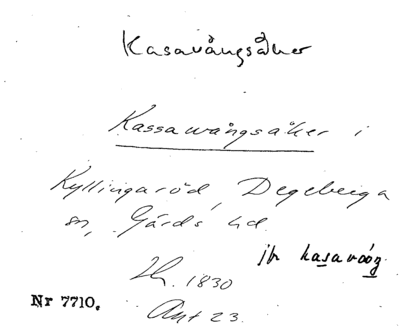 Kasavångsåker
Kassawångsåker i
Kyllingaröd, Degeberga
sn, Gärds hd.
jfr kasavóóz
Lh. 1830
Akt 23.
Nr 7710.